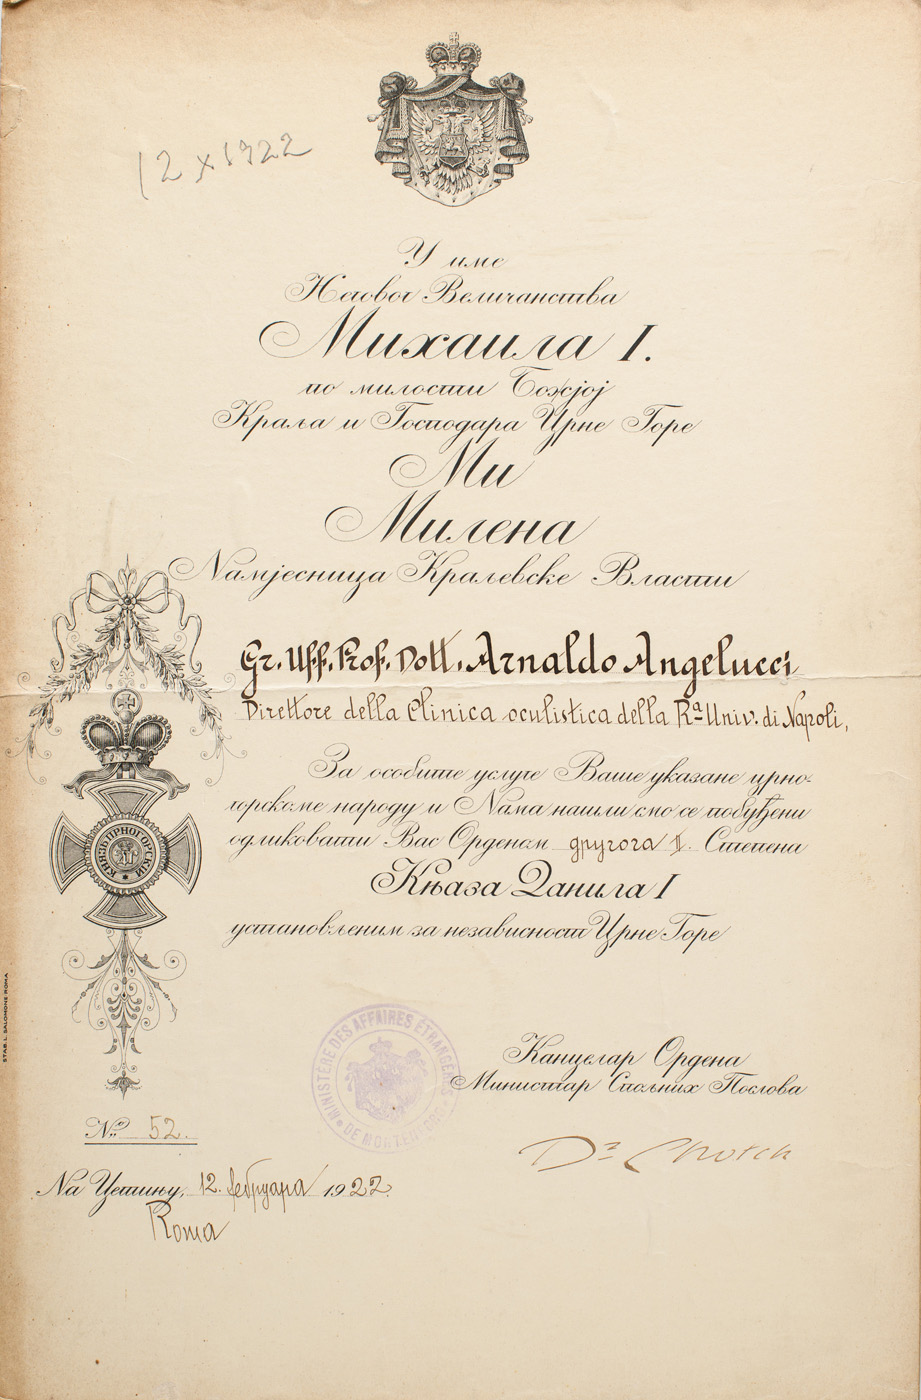 12 X 1922
У име
Његовог Величанства
Михаила I.
по милости Божјој
Краља и Господара Црне Горе
Ми
Милена
Намјесница Кралевске Власти
Gr. Uff. Prof. Dott. Arnaldo Angelucci
Direttore della Clinica oculistica della Rª Univ. di Napoli,
За особите услуге Ваше указане црно-
горскоме народу и Нама нашли смо се побуђени
одликовати Вас Орденом другога II. Степена
Књаза Данила I
установљеним за независност Црне Горе
КЊАЗЬ ЦРНОГОРСКИЙ
STAB. L. SALOMONE-ROMA
MINISTÈRE DES AFFAIRES ÉTRANGÈRES
DE MONTÉNÉGRO
Канцелар Ордена
Министар Спољних Послова
Dr Chotch
No. 52.
На Цетињу, 12. фебруара 1922.
Roma